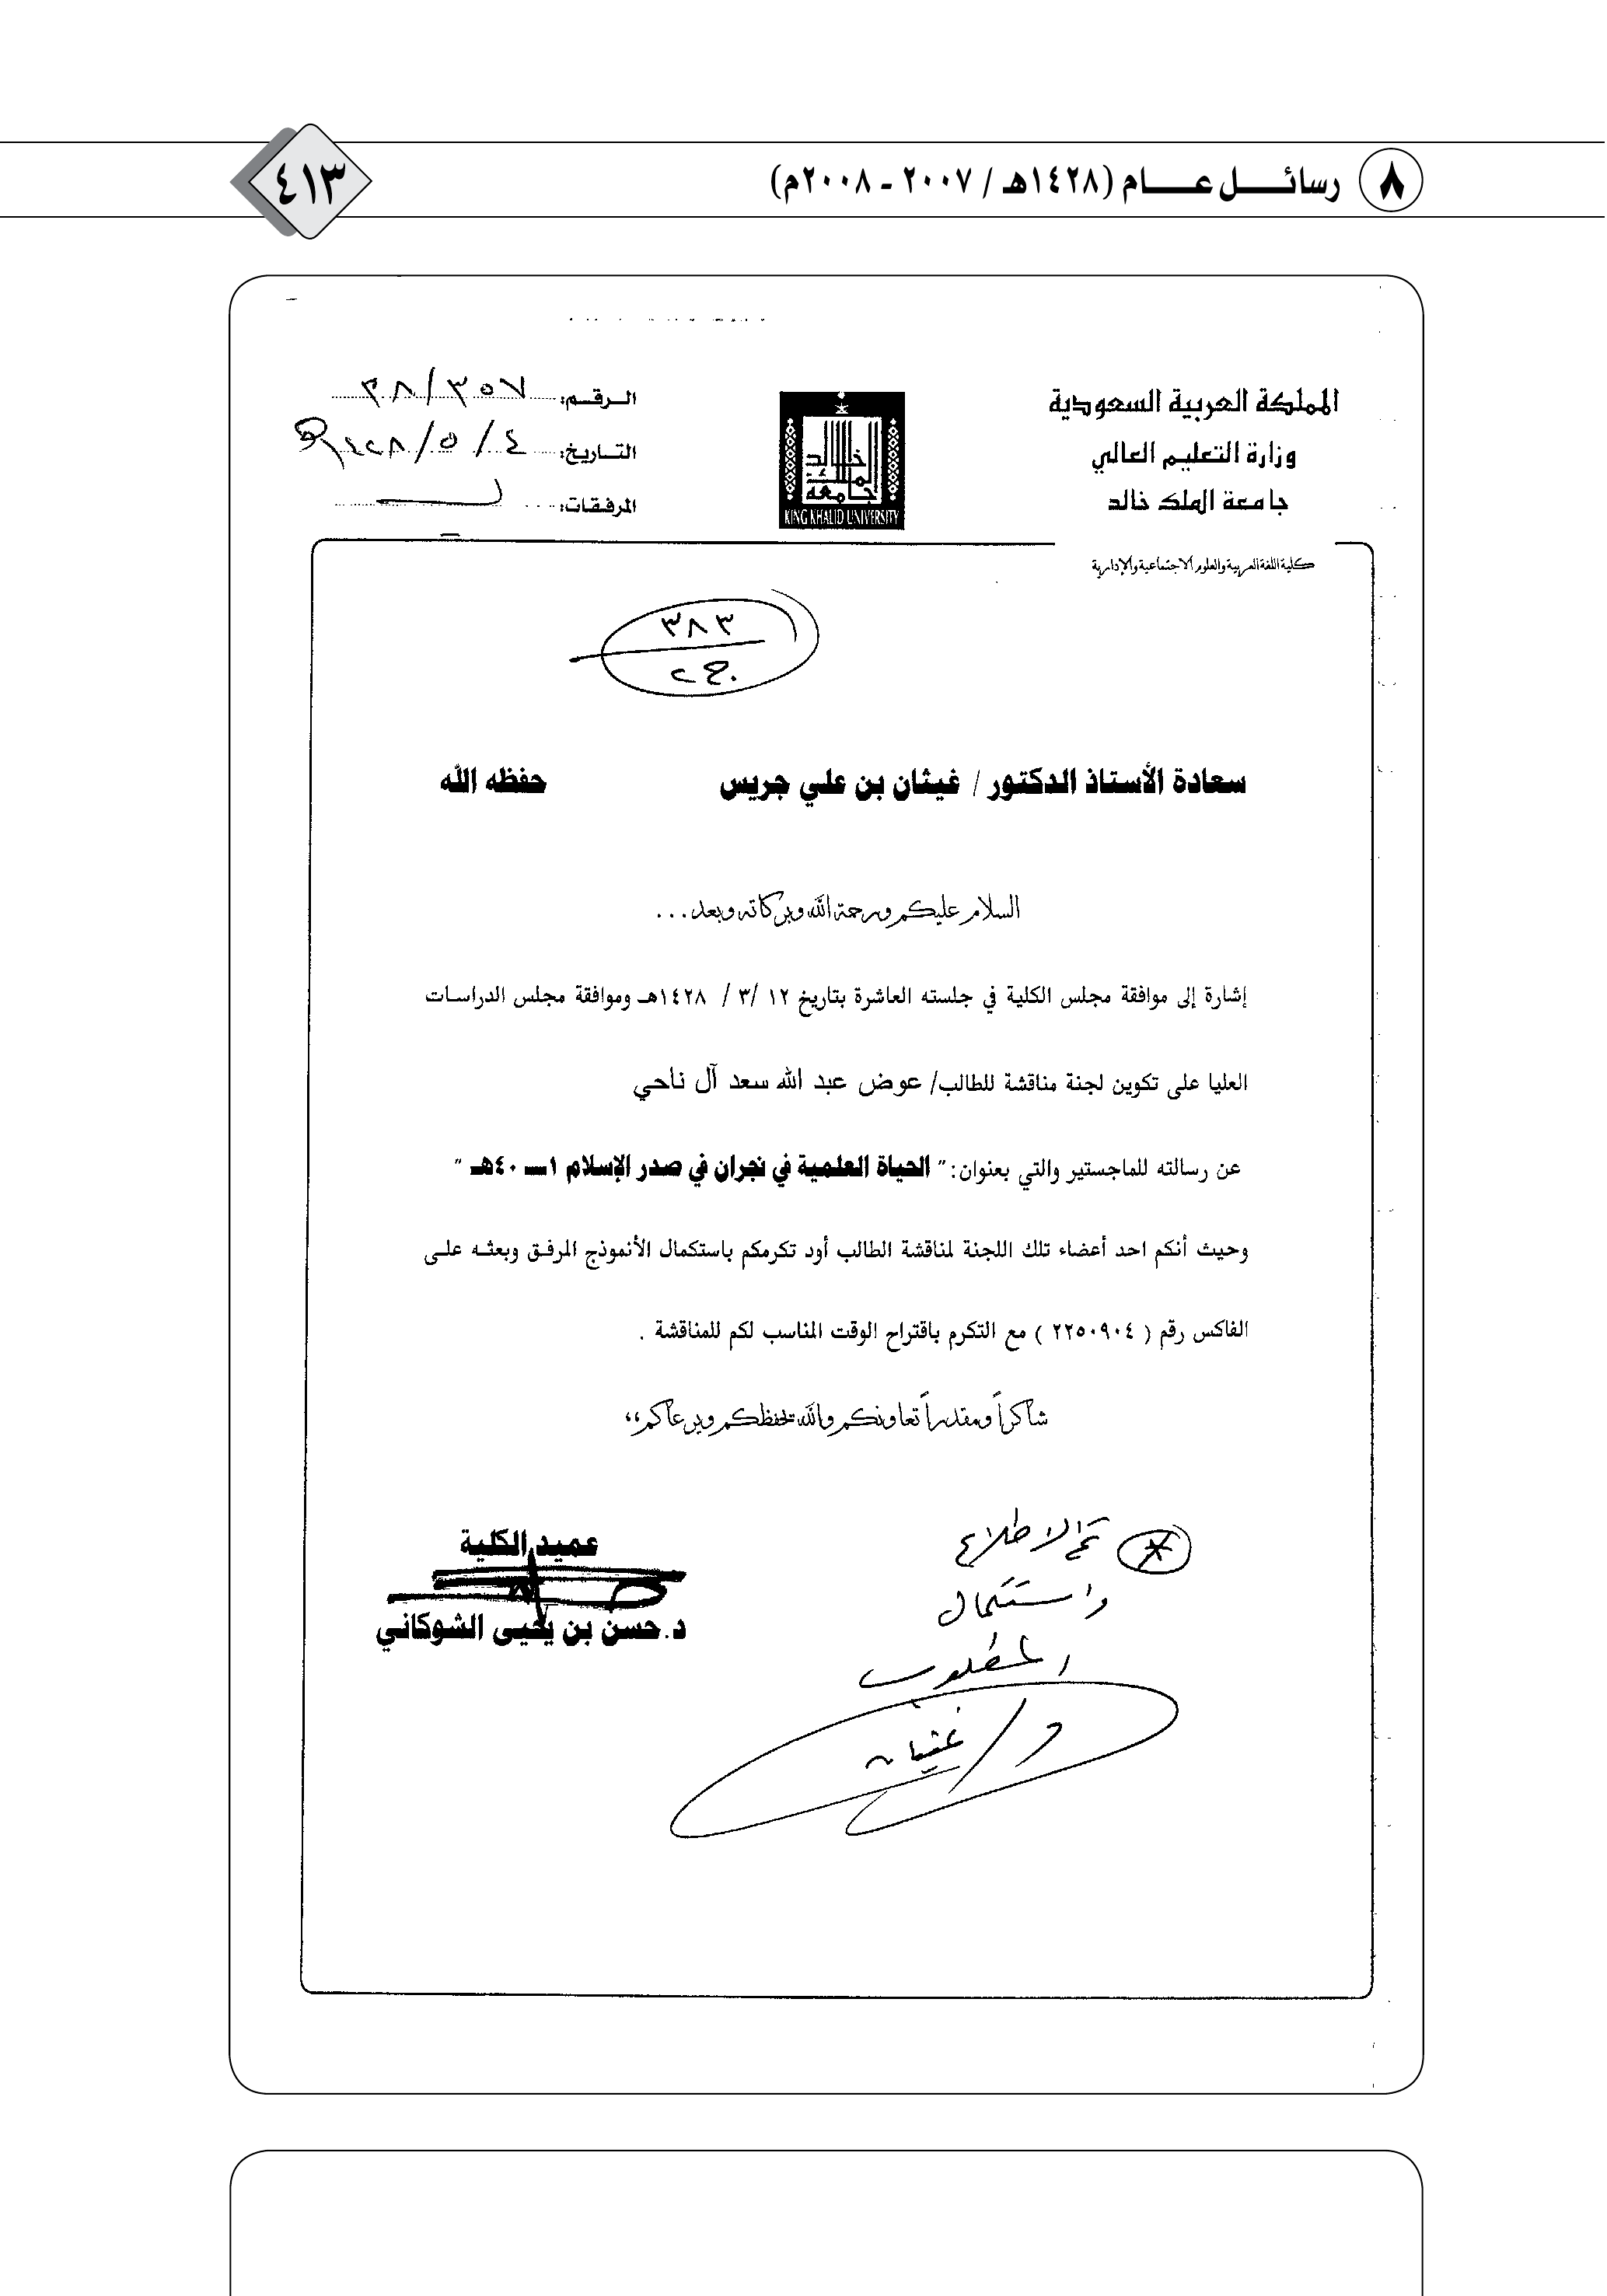 ٨ رسائــــل عــــــام (١٤٢٨هـ / ٢٠٠٧ - ٢٠٠٨م)
٤١٣
المملكة العربية السعودية
وزارة التعليم العالي
جامعة الملك خالد
كلية اللغة العربية والعلوم الاجتماعية والإدارية
جامعة الملك خالد
KING KHALID UNIVERSITY
الـرقـم:
التـاريخ: ٤ / ٥ / ١٤٢٨هـ
المرفـقـات:
٣٨٣
سعادة الأستاذ الدكتور / غيثان بن علي جريس حفظه الله
السلام عليكم ورحمة الله وبركاته وبعد...
إشارة إلى موافقة مجلس الكلية في جلسته العاشرة بتاريخ ١٢ /٣ / ١٤٢٨هـ وموافقة مجلس الدراسـات
العليا على تكوين لجنة مناقشة للطالب/ عوض عبد الله سعد آل ناحي
عن رسالته للماجستير والتي بعنوان: " الحياة العلمية في نجران في صدر الإسلام ١ــ ٤٠هـ "
وحيث أنكم احد أعضاء تلك اللجنة لمناقشة الطالب أود تكرمكم باستكمال الأنموذج المرفـق وبعثـه علـى
الفاكس رقم ( ٢٢٥٠٩٠٤ ) مع التكرم باقتراح الوقت المناسب لكم للمناقشة .
شاكراً ومقدراً تعاونكم والله يحفظكم ويرعاكم،،
عميد الكلية
د.حسن بن يحيى الشوكاني
تم الاطلاع
واستكمال
المطلوب
د/ غيثان